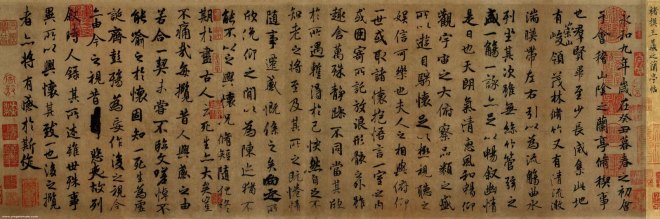 褚摹王羲之蘭亭帖
永和九年歲在癸丑暮春之初會
于會稽山陰之蘭亭脩稧事
也群賢畢至少長咸集此地
有崇山峻領茂林脩竹又有清流激
湍暎帶左右引以為流觴曲水
列坐其次雖無絲竹管弦之
盛一觴一詠亦足以暢敘幽情
是日也天朗氣清惠風和暢仰
觀宇宙之大俯察品類之盛
所以遊目騁懷足以極視聽之
娛信可樂也夫人之相與俯仰
一世或取諸懷抱悟言一室之內
或因寄所託放浪形骸之外雖
趣舍萬殊靜躁不同當其欣
於所遇暫得於己怏然自足不
知老之將至及其所之既惓情
隨事遷感慨係之矣向之所
欣俛仰之間以為陳迹猶不
能不以之興懷況脩短隨化終
期於盡古人云死生亦大矣豈
不痛哉每攬昔人興感之由
若合一契未嘗不臨文嗟悼不
能喻之於懷固知一死生為虛
誕齊彭殤為妄作後之視今
亦由今之視昔悲夫故列
敘時人錄其所述雖世殊事
異所以興懷其致一也後之攬
者亦將有感於斯文